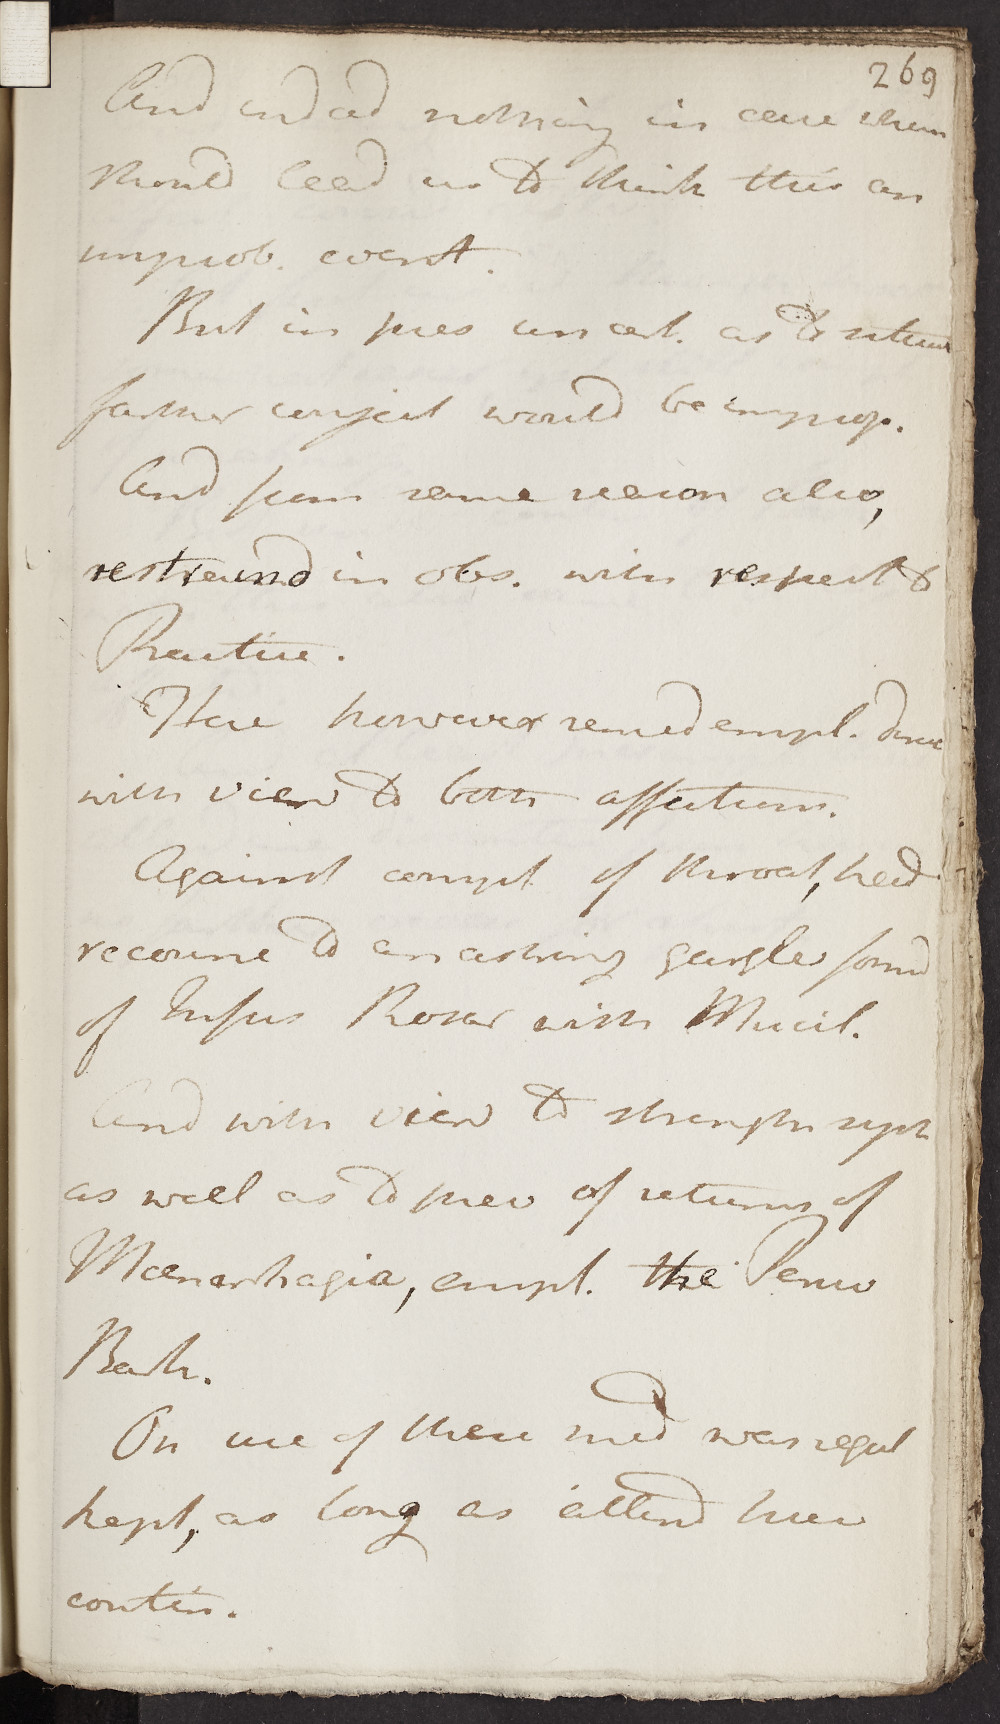 269
And indeed nothing in case whem
should lead us to think this an
improb. event.
But in pres uncert. as to return
farther conject would be improp.
And from same reason also,
restraind in obs. with respect to
Practice.
Here however remed empl. here
with view to both affections.
Against compl of throat, had
recourse to an astring gargle formd
of Infus Rosar with Mucil.
And with view to strengthn syst
as well as to prev of return of
Maenorrhagia, empl. the Peruv
Bark.
On use of these med was regul
kept, as long as attend here
contin.